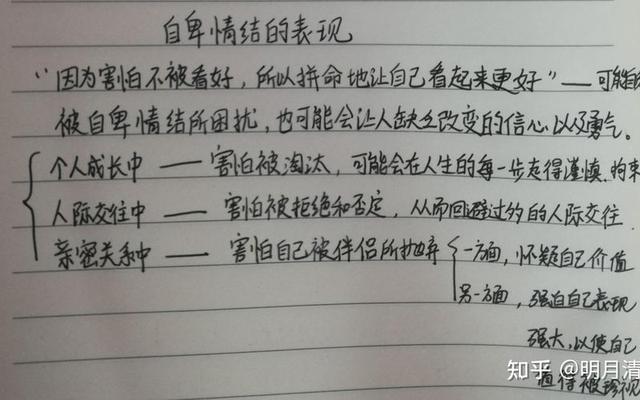 自卑情结的表现
“因为害怕不被看好，所以拼命地让自己看起来更好”——可能
被自卑情结所困扰，也可能会让人缺乏改变的信心以及勇气。
个人成长中——害怕被淘汰，可能会在人生的每一步走得谨慎、拘束
人际交往中——害怕被拒绝和否定，从而回避过多的人际交往
亲密关系中——害怕自己被伴侣所抛弃 一方面，怀疑自己价值
另一方面，强迫自己表现
强大，以使自己
值得被珍视
知乎 @明月清